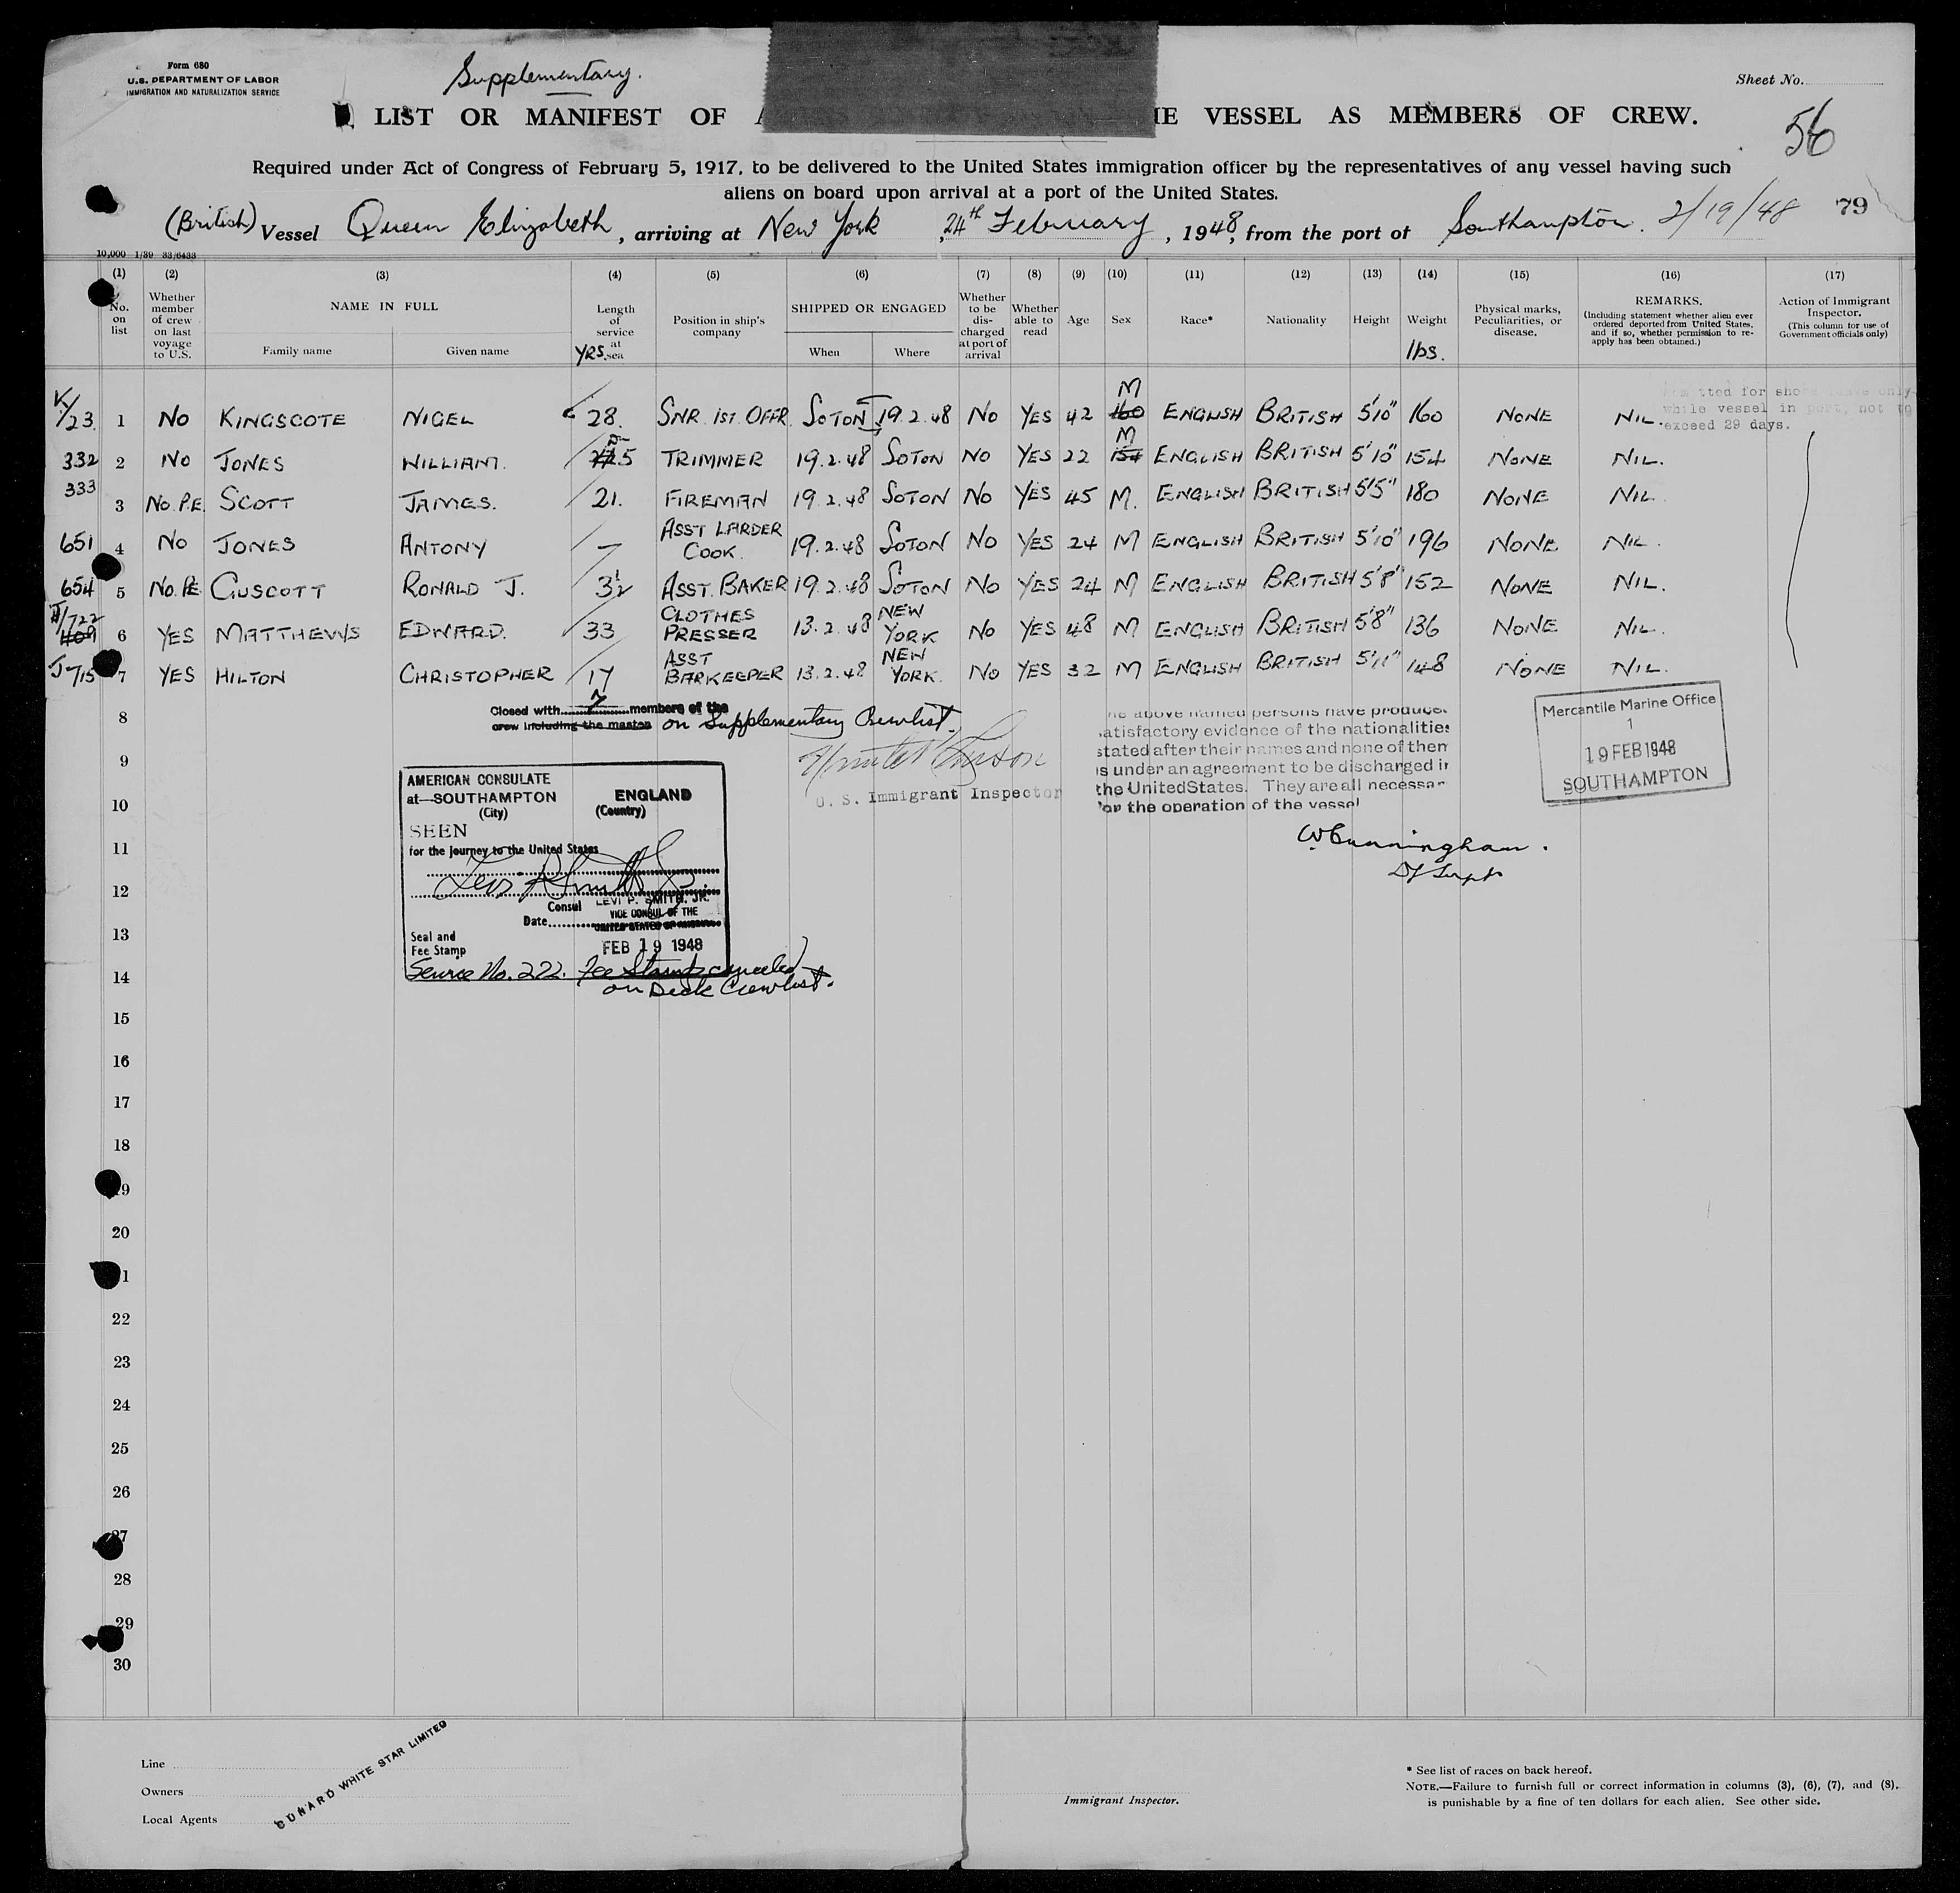 Form 680
U.S. DEPARTMENT OF LABOR
IMMIGRATION AND NATURALIZATION SERVICE
Supplementary.
Sheet No.
LIST OR MANIFEST OF VESSEL AS MEMBERS OF CREW.
56
Required under Act of Congress of February 5, 1917, to be delivered to the United States immigration officer by the representatives of any vessel having such
aliens on board upon arrival at a port of the United States.
(British) Vessel Queen Elizabeth, arriving at New York, 24th February, 1948, from the port of Southampton. 2/19/48 79
10,000 1/39 33/6433
(1) (2) (3) (4) (5) (6) (7) (8) (9) (10) (11) (12) (13) (14) (15) (16) (17)
No. on list
Whether member of crew on last voyage to U.S.
NAME IN FULL
Family name Given name
Length of service at sea
YRS.
Position in ship's company
SHIPPED OR ENGAGED
When Where
Whether to be discharged at port of arrival
Whether able to read
Age
Sex
Race*
Nationality
Height
Weight
lbs.
Physical marks, Peculiarities, or disease.
REMARKS.
(Including statement whether alien ever ordered deported from United States, and if so, whether permission to re-apply has been obtained.)
Action of Immigrant Inspector.
(This column for use of Government officials only)
K/23. 1 NO KINGSCOTE NIGEL 28. SNR. 1ST. OFFR. SOTON 19.2.48 NO YES 42 160 M ENGLISH BRITISH 5'10" 160 NONE NIL.
while vessel in port, not to
exceed 29 days.
332 2 NO JONES WILLIAM. 5 TRIMMER 19.2.48 SOTON NO YES 22 154 M ENGLISH BRITISH 5'10" 154 NONE NIL.
333 3 NO. P.E. SCOTT JAMES. 21. FIREMAN 19.2.48 SOTON NO YES 45 M. ENGLISH BRITISH 5'5" 180 NONE NIL.
651 4 NO JONES ANTONY – ASST LARDER COOK. 19.2.48 SOTON NO YES 24 M ENGLISH BRITISH 5'10" 196 NONE NIL.
654 5 NO. P.E. GUSCOTT RONALD J. 3½ ASST. BAKER 19.2.48 SOTON NO YES 24 M ENGLISH BRITISH 5'8" 152 NONE NIL.
722 409 6 YES MATTHEWS EDWARD. 33 CLOTHES PRESSER 13.2.48 NEW YORK NO YES 48 M ENGLISH BRITISH 5'8" 136 NONE NIL.
J/715 7 YES HILTON CHRISTOPHER 17 ASST BARKEEPER 13.2.48 NEW YORK. NO YES 32 M ENGLISH BRITISH 5'11" 148 NONE NIL.
8
Closed with 7 members of the
crew including the master on Supplementary Crewlist.
U. S. Immigrant Inspector
above named persons have produce
satisfactory evidence of the nationalities
stated after their names and none of them
is under an agreement to be discharged in
the United States. They are all necessar
for the operation of the vessel
Mercantile Marine Office
1
19 FEB 1948
SOUTHAMPTON
W Cunningham.
Dy Supt
9
10
AMERICAN CONSULATE
at—SOUTHAMPTON ENGLAND
(City) (Country)
SEEN
for the journey to the United States
Consul LEVI P. SMITH, JR.
VICE CONSUL OF THE
Date UNITED STATES OF AMERICA
Seal and
Fee Stamp
FEB 19 1948
Service No. 222. Fee Stamp canceled
on Deck Crewlist.
11
12
13
14
15
16
17
18
19
20
21
22
23
24
25
26
27
28
29
30
Line
Owners
Local Agents
CUNARD WHITE STAR LIMITED
Immigrant Inspector.
* See list of races on back hereof.
NOTE.—Failure to furnish full or correct information in columns (3), (6), (7), and (8),
is punishable by a fine of ten dollars for each alien. See other side.